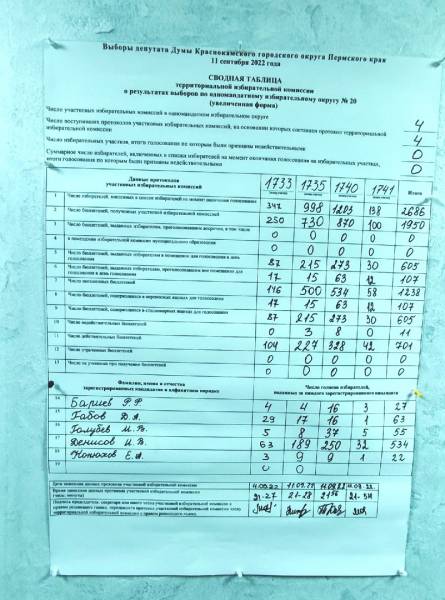 Выборы депутата Думы Краснокамского городского округа Пермского края
11 сентября 2022 года
СВОДНАЯ ТАБЛИЦА
территориальной избирательной комиссии
о результатах выборов по одномандатному избирательному округу № 20
(увеличенная форма)
Число участковых избирательных комиссий в одномандатном избирательном округе 4
Число поступивших протоколов участковых избирательных комиссий, на основании которых составлен протокол территориальной избирательной комиссии 4
Число избирательных участков, итоги голосования по которым были признаны недействительными 0
Суммарное число избирателей, включенных в списки избирателей на момент окончания голосования на избирательных участках, итоги голосования по которым были признаны недействительными 0
Данные протоколов участковых избирательных комиссий 1733 1735 1740 1741 Итого
1 Число избирателей, внесенных в список избирателей на момент окончания голосования 347 998 1203 138 2686
2 Число бюллетеней, полученных участковой избирательной комиссией 250 730 870 100 1950
3 Число бюллетеней, выданных избирателям, проголосовавшим досрочно, в том числе 0 0 0 0 0
4 в помещении избирательной комиссии муниципального образования 0 0 0 0 0
5 Число бюллетеней, выданных избирателям в помещении для голосования в день голосования 87 215 273 30 605
6 Число бюллетеней, выданных избирателям, проголосовавшим вне помещения для голосования в день голосования 17 15 63 12 107
7 Число погашенных бюллетеней 146 500 534 58 1238
8 Число бюллетеней, содержащихся в переносных ящиках для голосования 17 15 63 12 107
9 Число бюллетеней, содержащихся в стационарных ящиках для голосования 87 215 273 30 605
10 Число недействительных бюллетеней 0 3 8 0 11
11 Число действительных бюллетеней 104 227 328 42 701
12 Число утраченных бюллетеней 0 0 0 0 0
13 Число не учтенных при получении бюллетеней 0 0 0 0 0
Фамилии, имена и отчества зарегистрированных кандидатов в алфавитном порядке
Число голосов избирателей, поданных за каждого зарегистрированного кандидата
14 Бариев Р.Ф. 4 4 16 3 27
15 Габов Д.А. 29 17 16 1 63
16 Голубев И.В. 5 8 37 5 55
17 Денисов И.В. 63 189 250 32 534
18 Конюхов Е.И. 3 9 9 1 22
19 0 0
Дата подписания данных протоколов участковой избирательной комиссии
Время подписания данных протоколов участковой избирательной комиссии 21-27 21-28 21 56